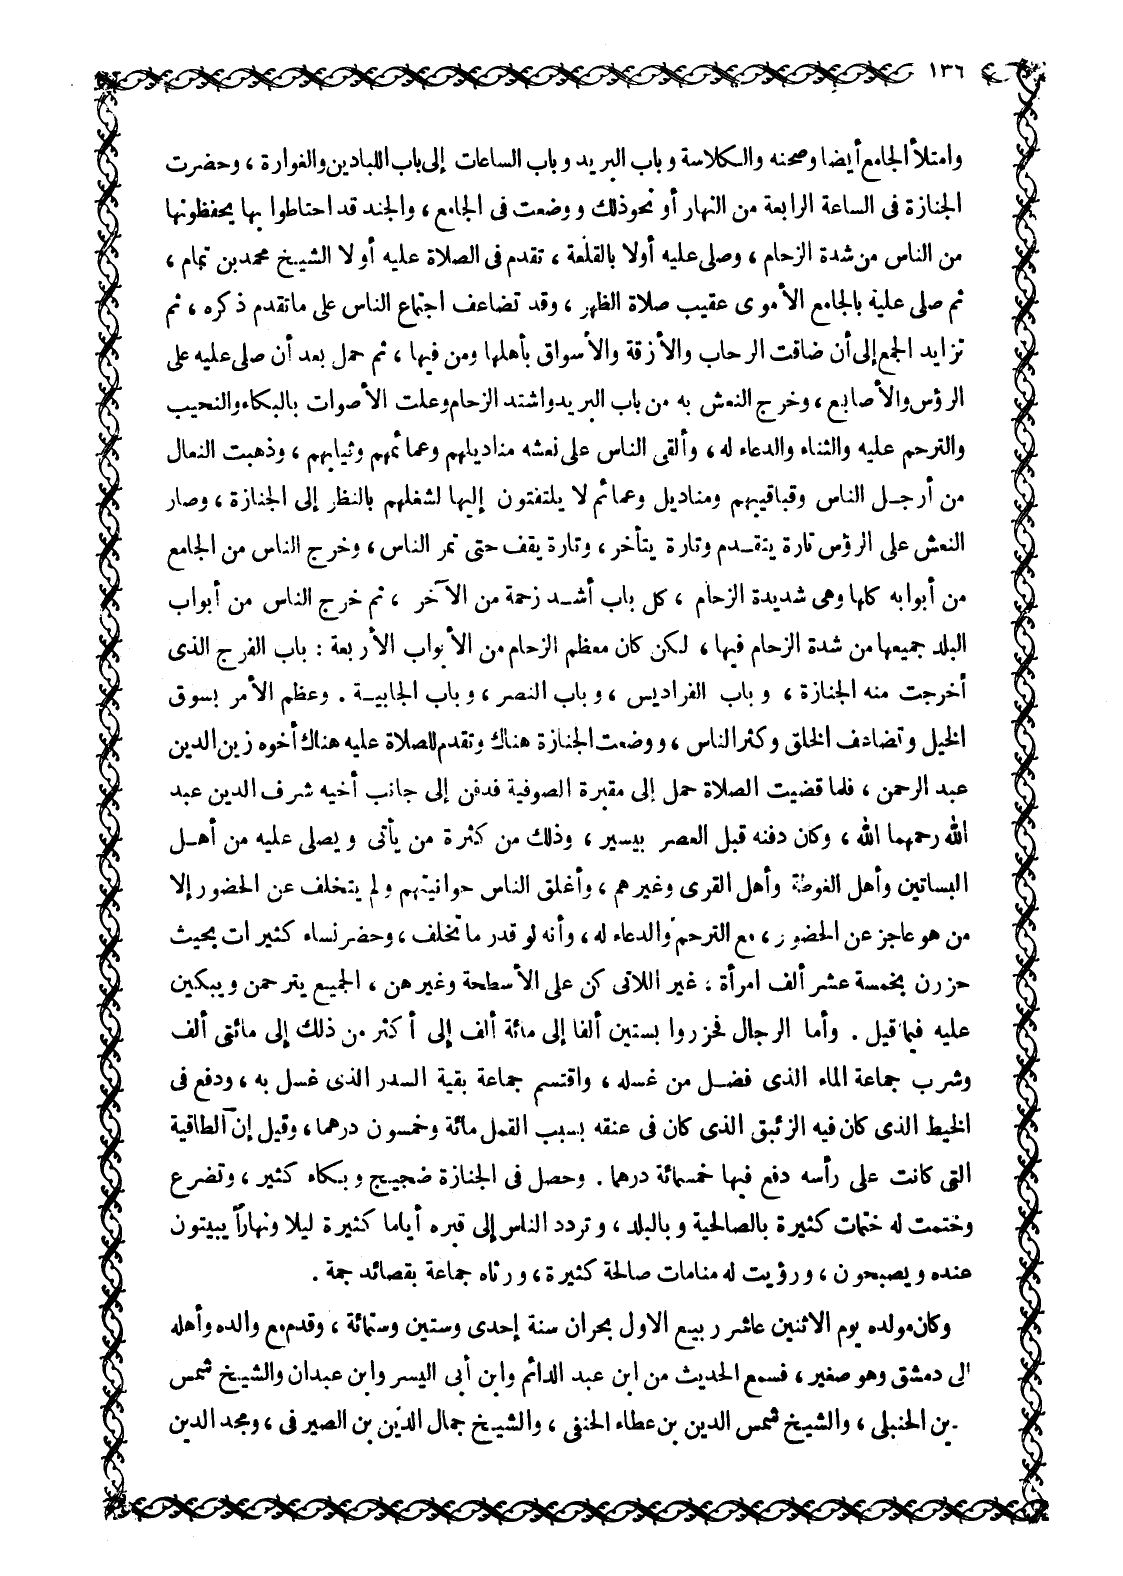 ١٣٦
وامتلأ الجامع أيضا وصحنه والكلاسة وباب البريد وباب الساعات إلى باب اللبادين والغوارة ، وحضرت
الجنازة فى الساعة الرابعة من النهار أو نحو ذلك ووضعت فى الجامع ، والجند قد احتاطوا بها يحفظونها
من الناس من شدة الزحام ، وصلى عليه أولا بالقلعة ، تقدم فى الصلاة عليه أولا الشيخ محمد بن تمام ،
ثم صلى عليه بالجامع الأموى عقيب صلاة الظهر ، وقد تضاعف اجتماع الناس على ماتقدم ذكره ، ثم
تزايد الجمع إلى أن ضاقت الرحاب والأزقة والأسواق بأهلها ومن فيها ، ثم حمل بعد أن صلى عليه على
الرؤس والأصابع ، وخرج النعش به من باب البريد واشتد الزحام وعلت الأصوات بالبكاء والنحيب
والترحم عليه والثناء والدعاء له ، وألقى الناس على نعشه مناديلهم وعمائمهم وثيابهم ، وذهبت النعال
من أرجل الناس وقباقيبهم ومناديل وعمائم لا يلتفتون إليها لشغلهم بالنظر إلى الجنازة ، وصار
النعش على الرؤس تارة يتقدم وتارة يتأخر ، وتارة يقف حتى تمر الناس ، وخرج الناس من الجامع
من أبوابه كلها وهى شديدة الزحام ، كل باب أشد زحمة من الآخر ، ثم خرج الناس من أبواب
البلد جميعها من شدة الزحام فيها ، لكن كان معظم الزحام من الأبواب الأربعة : باب الفرج الذى
أخرجت منه الجنازة ، وباب الفراديس ، وباب النصر ، وباب الجابية . وعظم الأمر بسوق
الخيل وتضادف الخلق وكثر الناس ، ووضعت الجنازة هناك وتقدم للصلاة عليه هناك أخوه زين الدين
عبد الرحمن ، فلما قضيت الصلاة حمل إلى مقبرة الصوفية فدفن إلى جانب أخيه شرف الدين عبد
الله رحمهما الله ، وكان دفنه قبل العصر بيسير ، وذلك من كثرة من يأتى ويصلى عليه من أهل
البساتين وأهل الغوطة وأهل القرى وغيرهم ، وأغلق الناس حوانيتهم ولم يتخلف عن الحضور إلا
من هو عاجز عن الحضور ، مع الترحم والدعاء له ، وأنه لو قدر ما تخلف ، وحضر نساء كثيرات بحيث
حزرن بخمسة عشر ألف امرأة ، غير اللاتى كن على الأسطحة وغيرهن ، الجميع يترحمن ويبكين
عليه فيما قيل . وأما الرجال فحزروا بستين ألفا إلى مائة ألف إلى أكثر من ذلك إلى مائتى ألف
وشرب جماعة الماء الذى فضل من غسله ، واقتسم جماعة بقية السدر الذى غسل به ، ودفع فى
الخيط الذى كان فيه الزئبق الذى كان فى عنقه بسبب القمل مائة وخمسون درهما ، وقيل إن الطاقية
التى كانت على رأسه دفع فيها خمسمائة درهما . وحصل فى الجنازة ضجيج وبكاء كثير ، وتضرع
وختمت له ختمات كثيرة بالصالحية وبالبلد ، وتردد الناس إلى قبره أياما كثيرة ليلا ونهاراً يبيتون
عنده ويصبحون ، ورؤيت له منامات صالحة كثيرة ، ورثاه جماعة بقصائد جمة .
وكان مولده يوم الاثنين عاشر ربيع الاول بحران سنة إحدى وستين وستمائة ، وقدم مع والده وأهله
الى دمشق وهو صغير ، فسمع الحديث من ابن عبد الدائم وابن أبى اليسر وابن عبدان والشيخ شمس
بن الحنبلى ، والشيخ شمس الدين بن عطاء الحنفى ، والشيخ جمال الدين بن الصيرفى ، ومجد الدين